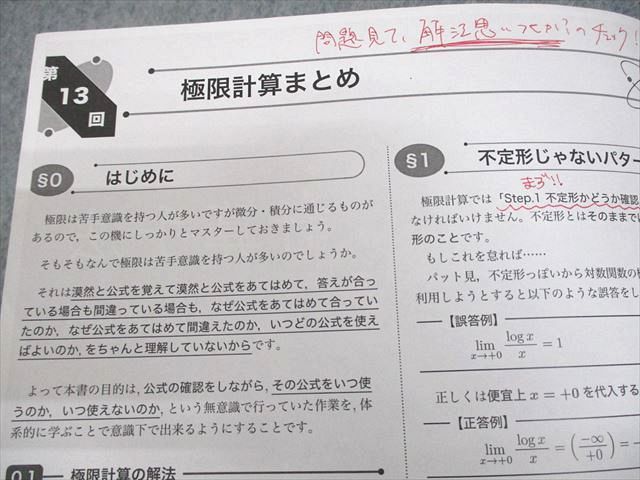 問題見て、解法思いつくか!?のチェック!
第
13
回
極限計算まとめ
§0 はじめに
極限は苦手意識を持つ人が多いですが微分・積分に通じるものが
あるので，この機にしっかりとマスターしておきましょう。
そもそもなんで極限は苦手意識を持つ人が多いのでしょうか。
それは漠然と公式を覚えて漠然と公式をあてはめて，答えが合っ
ている場合も間違っている場合も，なぜ公式をあてはめて合ってい
たのか，なぜ公式をあてはめて間違えたのか，いつどの公式を使え
ばよいのか，をちゃんと理解していないからです。
よって本書の目的は，公式の確認をしながら，その公式をいつ使
うのか，いつ使えないのか，という無意識で行っていた作業を，体
系的に学ぶことで意識下で出来るようにすることです。
0.1 極限計算の解法
§1 不定形じゃないパター
まず!!
極限計算では「Step.1 不定形かどうか確認
なければいけません。不定形とはそのままで
形のことです。
もしこれを怠れば……
パット見，不定形っぽいから対数関数の
利用しようとすると以下のような誤答をし
【誤答例】
lim x→+0 log x / x = 1
正しくは便宜上 x = +0 を代入する
【正答例】
lim x→+0 log x / x = (−∞ / +0) = −